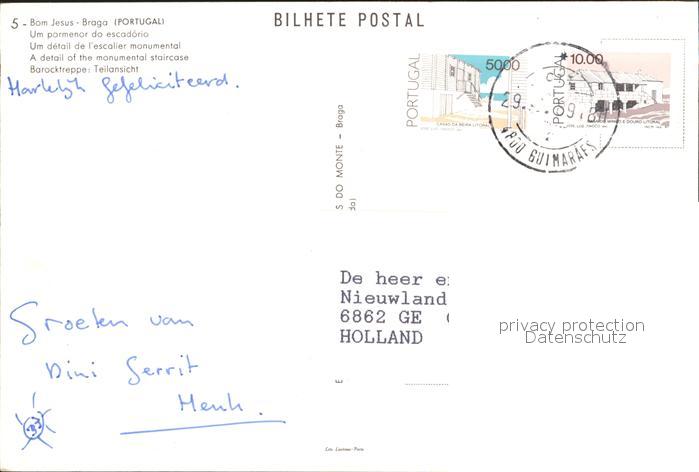 5 - Bom Jesus - Braga (PORTUGAL)
Um pormenor do escadório
Um détail de l'escalier monumental
A detail of the monumental staircase
Barocktreppe: Teilansicht
BILHETE POSTAL
Hartelijk gefeliciteerd.
PORTUGAL 5000
CASAS DA BEIRA LITORAL
PORTUGAL 10.00
MINHO E DOURO LITORAL
GUIMARÃES
S DO MONTE - Braga
De heer e
Nieuwland
6862 GE
HOLLAND
privacy protection
Datenschutz
Groeten van
Dini Gerrit
Henk.